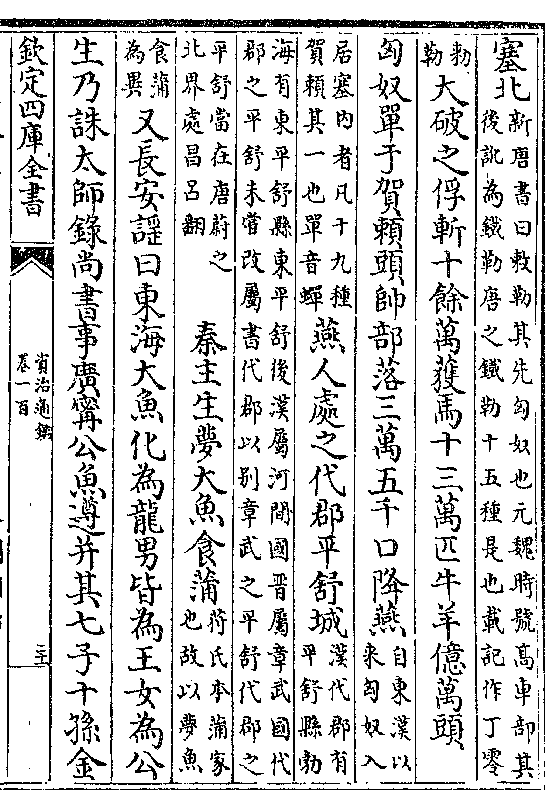 塞北新唐書曰敕勒其先匈奴也元魏時號高車部其
後訛為鐵勒唐之鐵勒十五種是也載記作丁零
敕勒大破之俘斬十餘萬獲馬十三萬匹牛羊億萬頭
匈奴單于賀賴頭帥部落三萬五千口降燕自東漢以
來匈奴入
居塞内者凡十九種
賀賴其一也單音蟬燕人處之代郡平舒城漢代郡有
平舒縣勃
海有東平舒縣東平舒後漢屬河間國晉屬章武國代
郡之平舒未嘗改屬書代郡以别章武之平舒代郡之
平舒當在唐蔚之
北界處昌呂翻秦主生夢大魚食蒲苻氏本蒲家
也故以夢魚
食蒲
為異又長安謡曰東海大魚化為龍男皆為王女為公
生乃誅太師錄尚書事廣寧公魚遵并其七子十孫金
欽定四庫全書
資治通鑑
卷一百